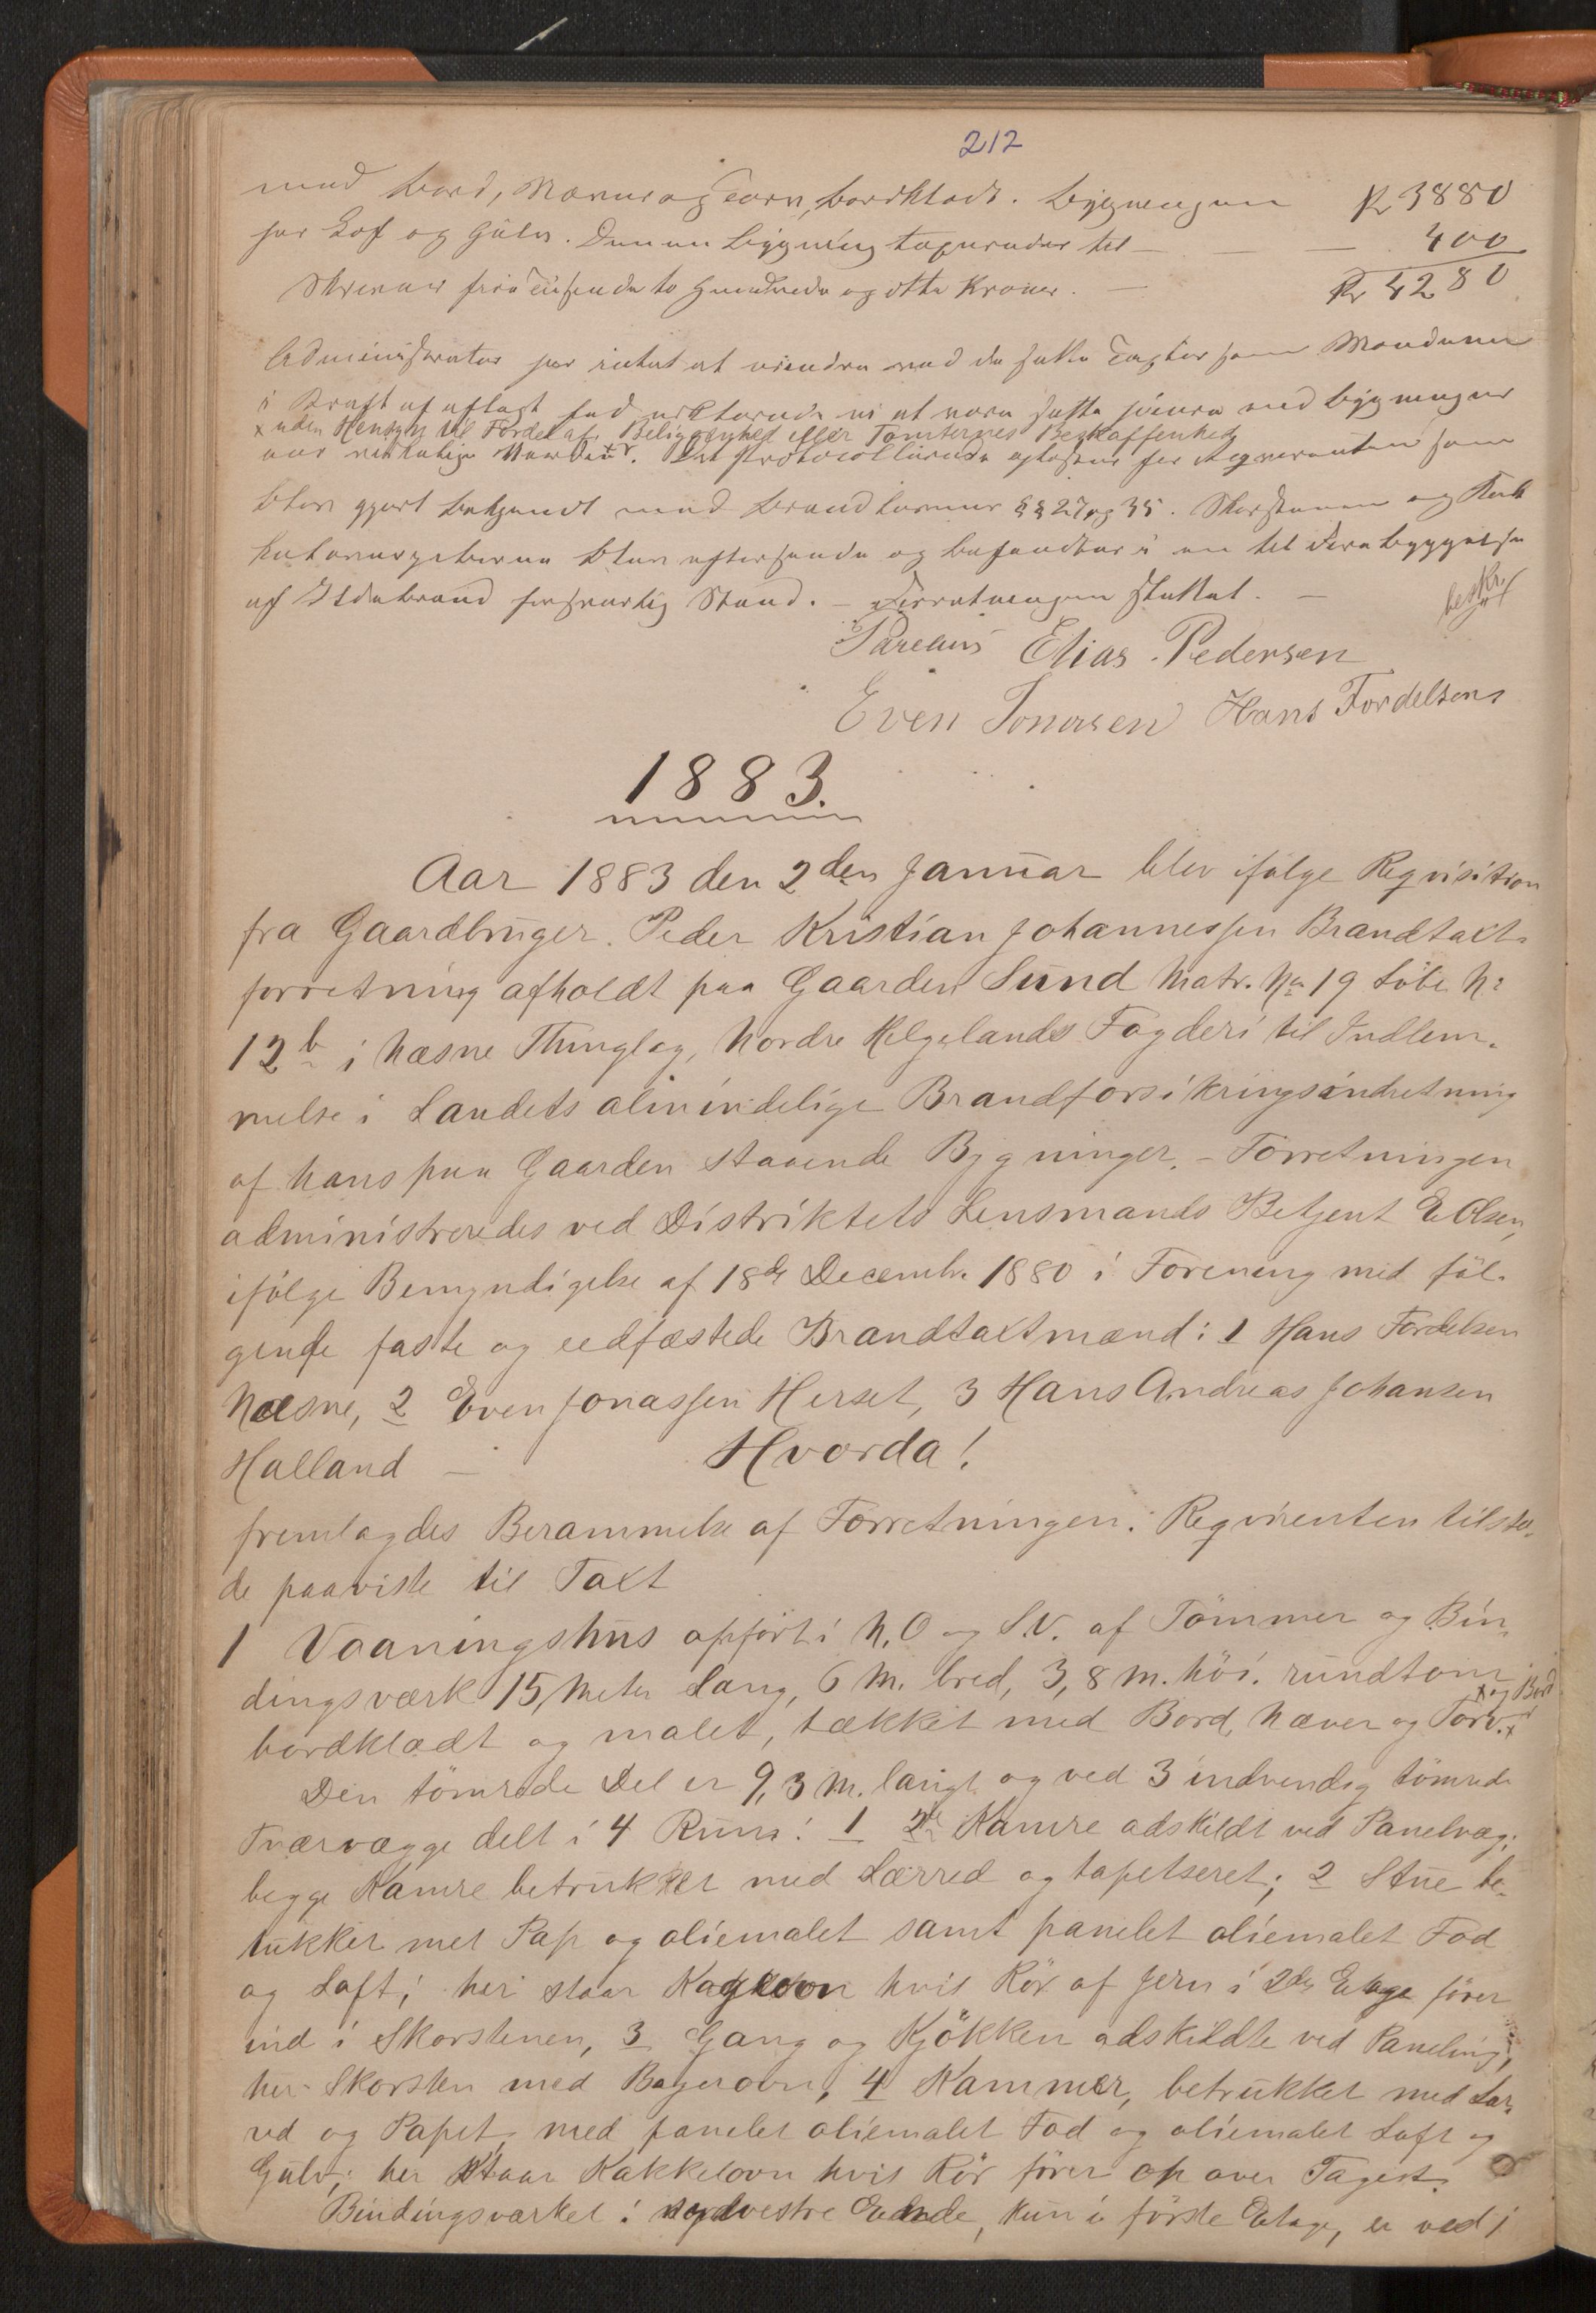 212
med Bord, Næver og Torv, bordklædt. Bygningen Kr 3880
har Loft og Gulv. Denne Bygning taxeredes til — — 400
Skriver fire Tusinde to Hundrede og otti Kroner. — Kr 4280
Administrator har intet at erindre mod de satte Taxter som Mændene
i Kraft af aflagt Eed erklærede at være satte jævne med Bygningernes
x uden Hensyn til Fordel af Beliggenhed eller Tomternes Beskaffenhed
sande nuværende Værdi. x Det Protocollerede oplæstes for Reqvirenten som
blev gjort bekjendt med Brandlovens §§ 27 og 35. Skorstenen og Kak
kelovnsrørene blev efterseede og befandtes i en til Forebyggelse
af Ildebrand forsvarlig Stand. — Forretningen sluttet. —
beskr.
Parelius Elias Pedersen
Even Jonasen Hans Fordelsens
1883.
Aar 1883 den 2den Januar blev ifølge Reqvisition
fra Gaardbruger Peder Kristian Johannessen Brandtaxt-
forretning afholdt paa Gaarden Sund Matr. No 19 Löbe No
12b i Næsne Thinglag, Nordre Helgelands Fogderi til Indlem-
melse i Landets almindelige Brandforsikringsindretning
af hans paa Gaarden staaende Bygninger. – Forretningen
administreredes ved Distriktets Lensmands Betjent E Olsen,
ifölge Bemyndigelse af 18de Decembr. 1880 i Forening med föl-
gende faste og eedfæstede Brandtaxtmænd: 1 Hans Fordelsen
Næsne, 2 Even Jonassen Herset, 3 Hans Andreas Johansen
Halland — Hvorda!
fremlagdes Berammelse af Forretningen. Reqvirenten tilste-
de paaviste til Taxt
1 Vaaningshus opfört i N.O og S.V. af Tömmer og Bin-
dingsværk 15, Meter lang, 6 M. bred, 3,8 M. höi. rundtom
bordklædt og malet, tækket med Bord, Næver og Torv. x
x og Bord
Den tömrede Del er 9,3 M. langt og ved 3 indvendig tömrede
Tværvægge delt i 4 Rum: 1 2de Kamre adskildt ved Panelvæg;
begge Kamre betrukket med Lærred og tapetseret; 2 Stue be-
tukket met Pap og oliemalet samt panelet oliemalet Fod
og Loft; her staar Kagkelovn hvis Rör af Jern i 2den Etage förer
ind i Skorstenen, 3 Gang og Kjökken adskildte ved Paneling,
her Skorsten med Bagerovn, 4 Kammer, betrukket med Lær-
red og Papet, med panelet oliemalet Fod og oliemalet Loft og
Gulv; her staar Kakkelovn hvis Rör förer op over Taget.
Bindingsværket i sydvestre Ende, kun i förste Etage, er ved 1